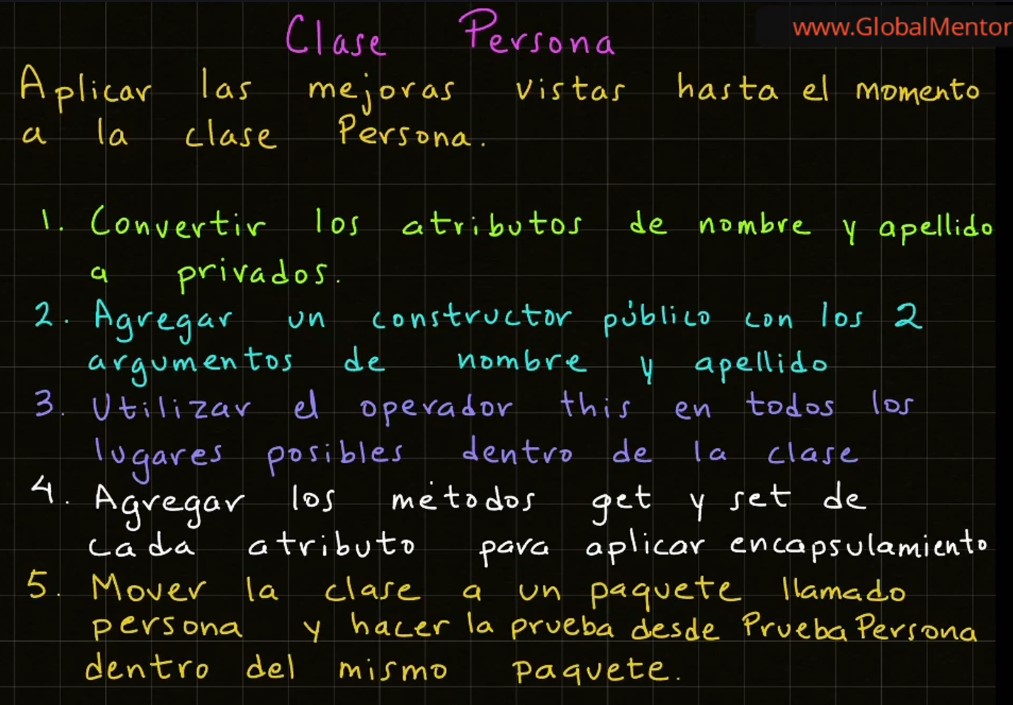 www.GlobalMentor
Clase Persona
Aplicar las mejoras vistas hasta el momento
a la clase Persona.
1. Convertir los atributos de nombre y apellido
a privados.
2. Agregar un constructor público con los 2
argumentos de nombre y apellido
3. Utilizar el operador this en todos los
lugares posibles dentro de la clase
4. Agregar los métodos get y set de
cada atributo para aplicar encapsulamiento
5. Mover la clase a un paquete llamado
persona y hacer la prueba desde PruebaPersona
dentro del mismo paquete.